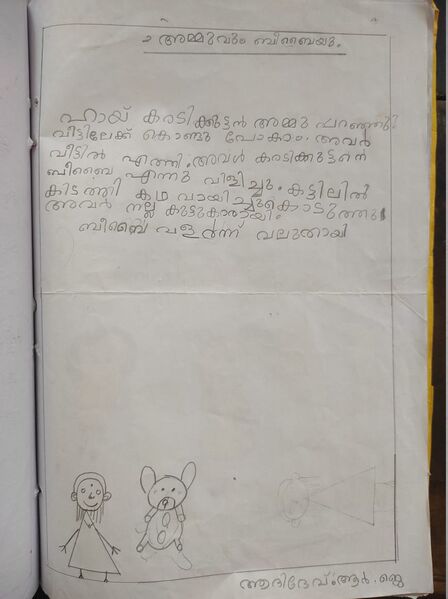 2 അമ്മുവും ബീബൈയും.
ഹായ് കരടിക്കുട്ടൻ അമ്മു പറഞ്ഞു.
വീട്ടിലേക്ക് കൊണ്ടു പോകാം. അവർ
വീട്ടിൽ എത്തി. അവൾ കരടിക്കുട്ടനെ
ബീബൈ എന്നു വിളിച്ചു. കട്ടിലിൽ
കിടത്തി കഥ വായിച്ചുകൊടുത്തു
അവർ നല്ല കൂട്ടുകാരായി.
ബീബൈ വളർന്ന് വലുതായി
ആദിദേവ്. ആർ. ജെ